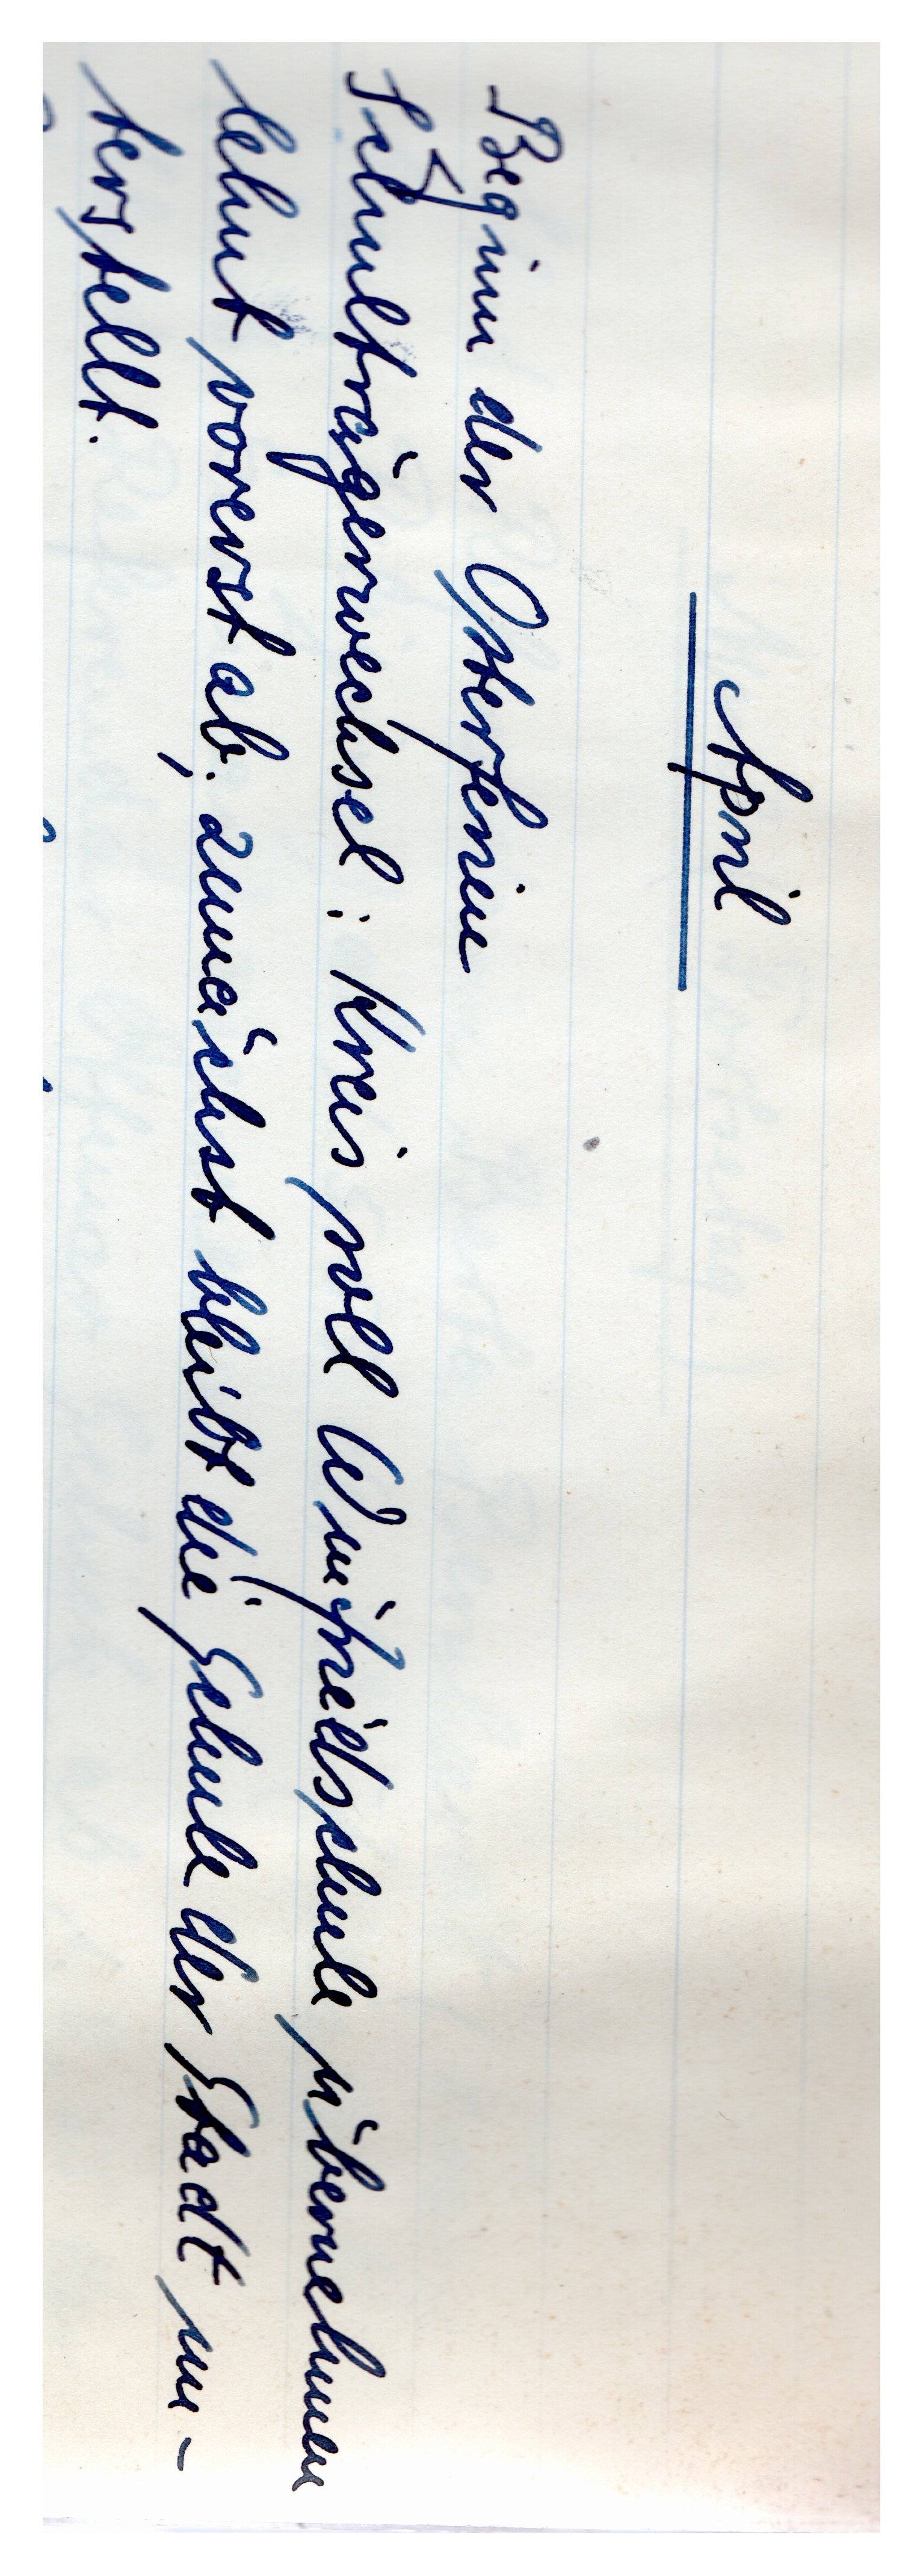 April
Beginn der Osterferien
Schulträgerwechsel: Kreis soll Winfriedschule übernehmen
lehnt vorerst ab; zunächst bleibt die Schule der Stadt un-
terstellt.